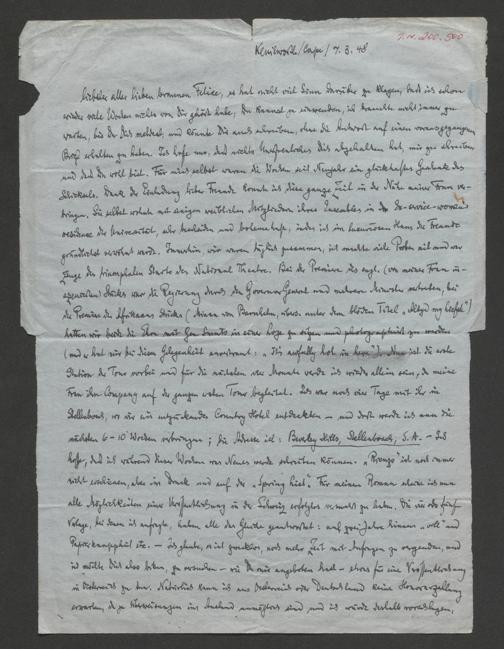 I.N. 200.580
Kenilworth/Cape/7.3.48
Liebster aller lieben Felice, es hat nicht viel Sinn darüber zu klagen, daß ich schon
wieder viele Wochen nichts von Dir gehört habe, Du kannst ja einwenden, ich brauchte nicht immer zu
warten, bis Du Dich meldest, und könnte Dir auch schreiben, ohne die Antwort auf einen vorangegangenen
Brief erhalten zu haben. Ich hoffe nur, daß nichts Dich abgehalten hat, mir zu schreiben
und daß Du wohl bist. Für mich selbst waren die Wochen seit Neujahr ein Geschenk des
Schicksals. Dank der Einladung lieber Freunde konnte ich diese ganze Zeit in der Nähe meiner Frau ver-
bringen. Sie selbst wohnte mit einigen weiblichen Mitgliedern ihres Ensembles in der
residence der Universität, sehr und , indes ich im luxuriösen Haus der Freunde
verwöhnt wurde. Immerhin, wir waren täglich zusammen, ich machte viele Proben mit und war
Zeuge des triumphalen Starts des National Theatre. Bei der Premiere des engl. (von meiner Frau in-
szenierten) Stücks war die Regierung durch den Governor General und mehrere Minister vertreten, bei
der Premiere des Afrikaans Stücks (Minna von Barnhelm, unter dem blöden Titel
hatten wir beide die Ehre mit Gen. Smuts in einer Loge zu sitzen und photographiert zu werden
(und er hat mir bei dieser Gelegenheit anvertraut: „It's awfully hot in here"). Nun ist die erste
Station der Tour vorbei und für die nächsten vier Monate werde ich wieder allein sein, da meine
Frau ihre Company auf der ganzen weiten Tour begleitet. Ich war noch vier Tage mit ihr in
Stellenbosch, wo wir ein entzückendes Country Hotel entdeckten – und dort werde ich nun die
nächsten 6-10 Wochen verbringen; die Adresse ist: Beverley Hills, Stellenbosch, S.A. – Ich
hoffe, daß ich während dieser Wochen was Neues werde schreiben können. ist noch immer
nicht erschienen, aber im Druck und auf der „Spring list". Für meinen Roman allein ist nun
alle Möglichkeiten einer Veröffentlichung in der Schweiz erfolglos versucht zu haben. Die vier oder fünf
Verlage, bei denen ich anfragte, haben alle das Gleiche geantwortet: auf zwei Jahre hinaus „voll" und
Papierknappheit etc. – Ich glaube, es ist zwecklos, noch mehr Zeit mit Anfragen zu vergeuden, und
ich möchte Dich also bitten, zu versuchen – wie Du mir angeboten hast – etwas für eine Veröffentlichung
in Österreich zu tun. Natürlich kann ich aus Österreich oder Deutschland keine Honorarzahlung
erwarten, da ja Überweisungen ins Ausland unmöglich sind und ich würde deshalb vorschlagen,